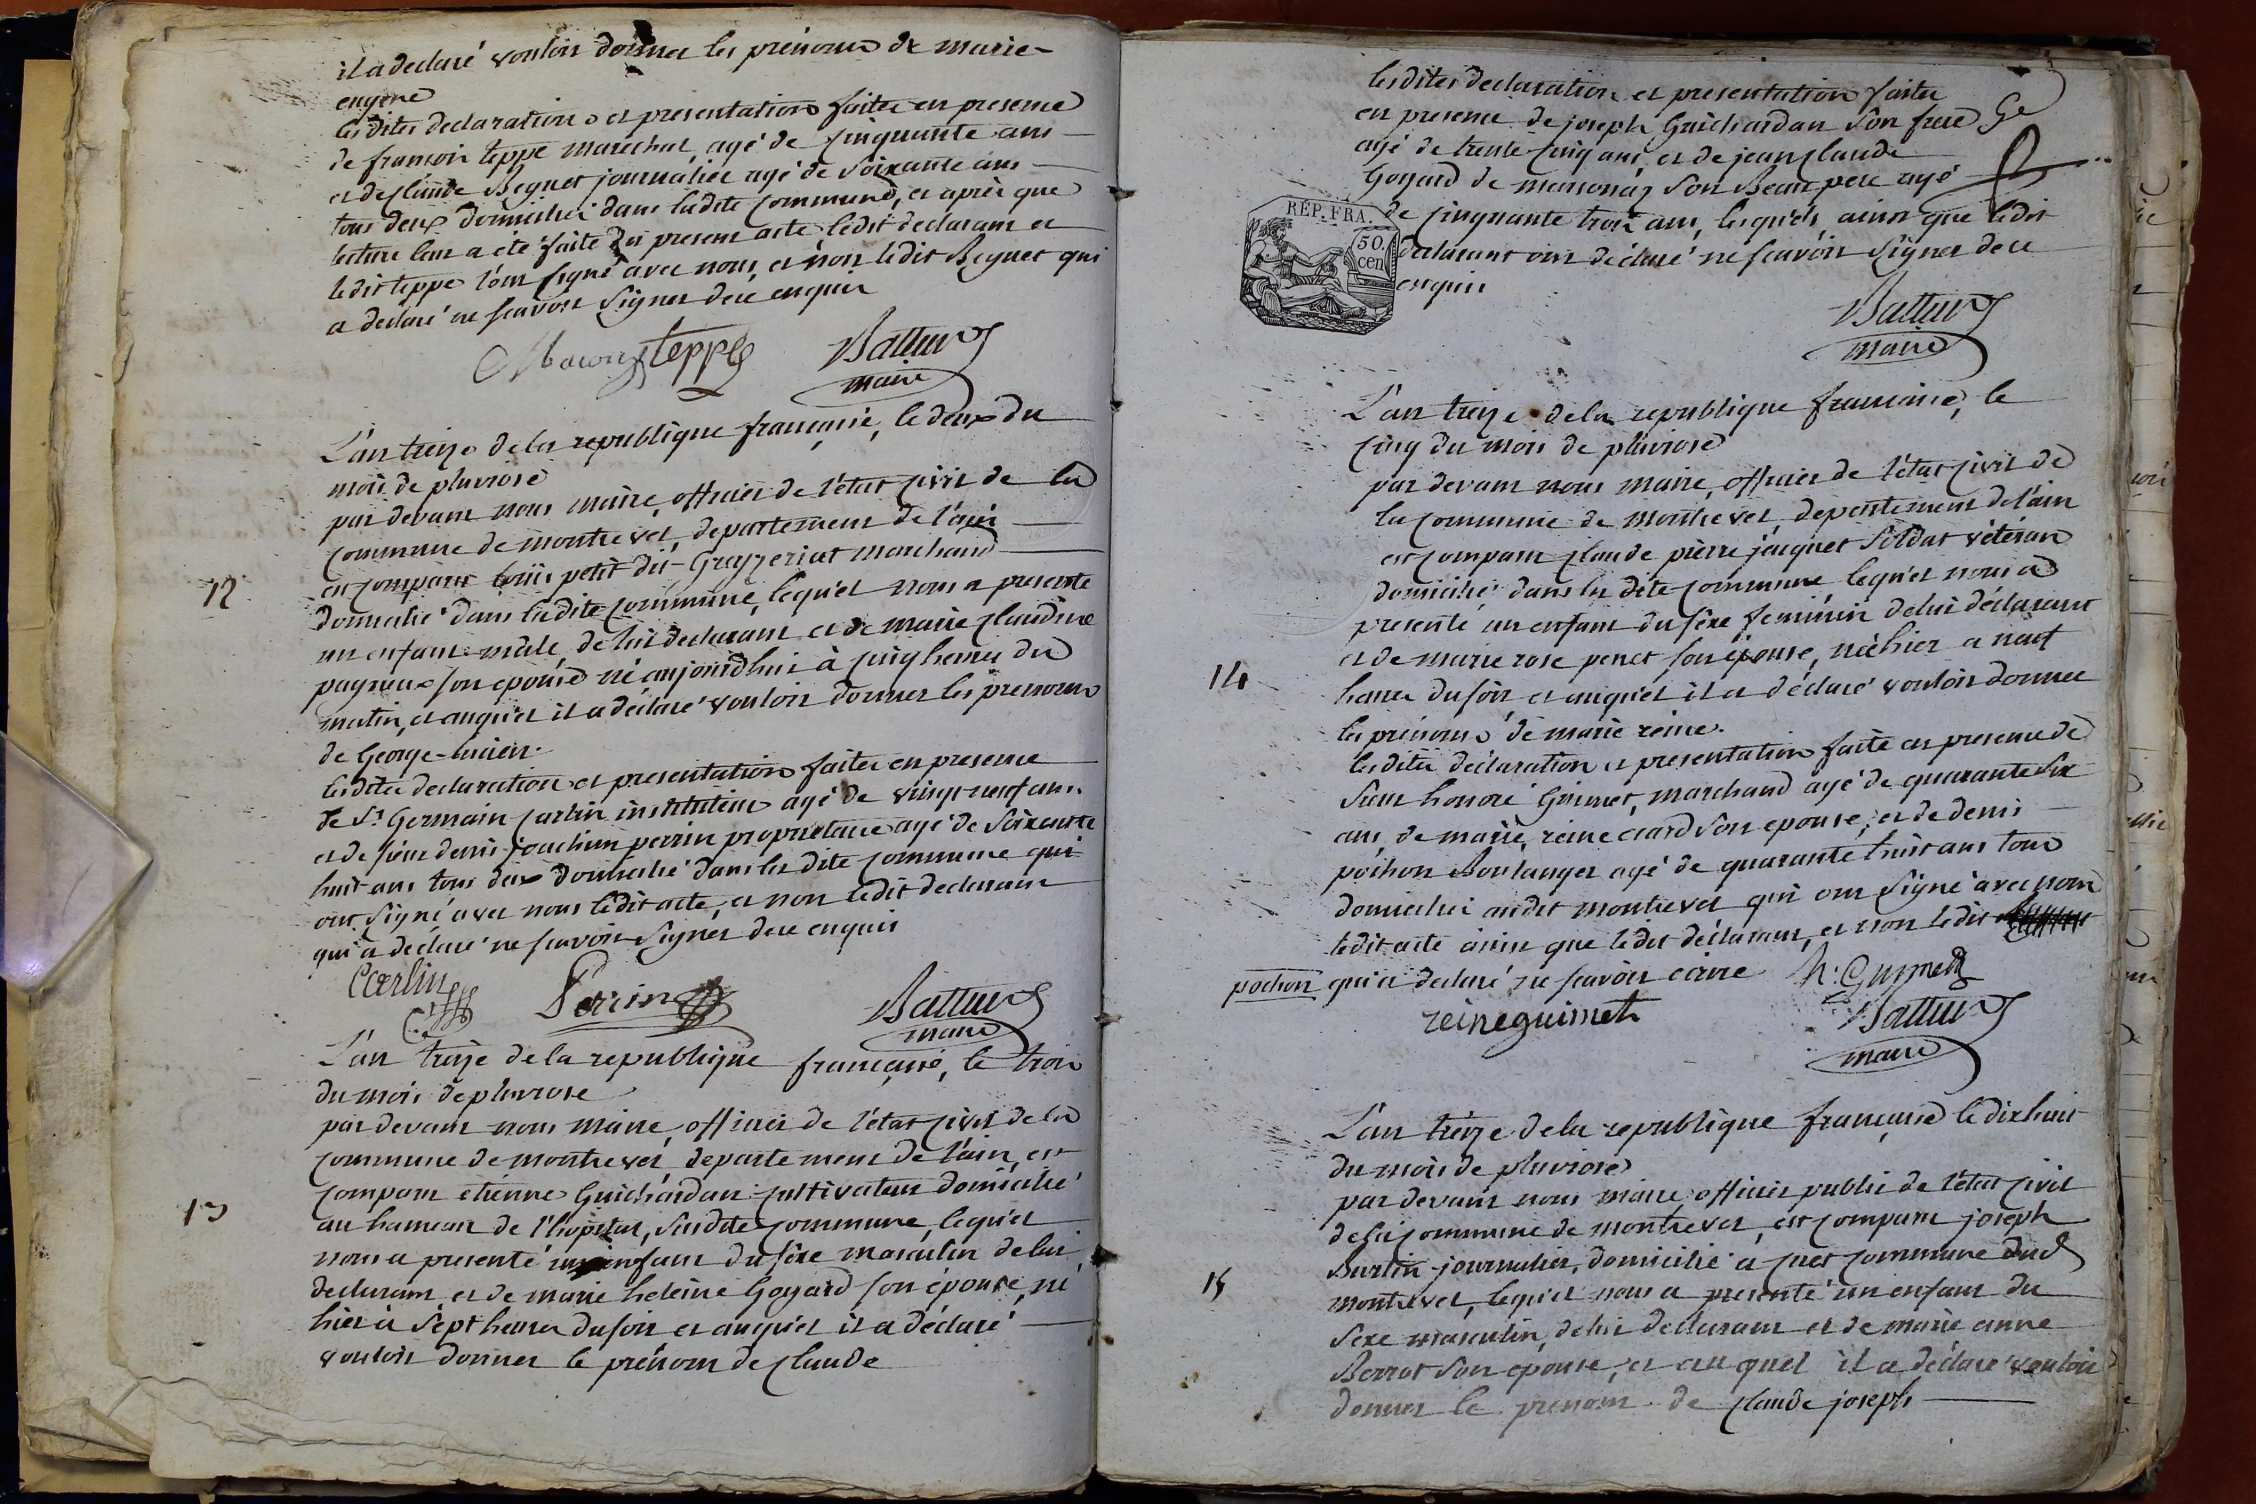 il a declaré vouloir donner les prénoms de marie-
eugene
les dites declarations et presentations faites en presence
de francois teppe marechal, agé de cinquante ans
et de claude Beguet journalier agé de soixante ans
tous deux domiciliés dans ladite commune, et après que
lecture leur a été faite du present acte ledit declarant et
ledit teppe l'ont signé avec nous, et non ledit Beguet qui
a declaré ne scavoir signer de ce enquis
teppe Battur
maire
L'an treize de la republique française, le deux du
mois de pluviose
par devant nous maire, officier de l'état civil de la
commune de montrevel, departement de l'ain
12
est comparu louis petit dit Grezeriat marchand
domicilié dans ladite commune, lequel nous a presenté
un enfant mâle de lui declarant et de marie claudine
pagneux son epouse né aujourdhui à cinq heures du
matin, et auquel il a déclaré vouloir donner les prenoms
de George-lucien.
lesdites declaration et presentation faites en presence
de Sr. Germain carlin instituteur agé de vingt neuf ans
et de sieur denis joachim perrin proprietaire agé de soixante
huit ans tous deux domiciliés dans la dite commune qui
ont signé avec nous ledit acte, et non ledit declarant
qui a declaré ne scavoir signer de ce enquis
Carlin Perrin Battur
maire
L'an treize de la republique française, le trois
du mois de pluviose
par devant nous maire, officier de l'état civil de la
commune de montrevel, departement de l'ain, est
comparu etienne Guichardan cultivateur domicilié
13
au hameau de l'hopital, susdite commune, lequel
nous a presenté un enfant du sexe masculin de lui
declarant et de marie heleine Goyard son épouse, né
hier à sept heures du soir et auquel il a déclaré
vouloir donner le prénom de claude
les dites declaration et presentation faites
en presence de joseph Guichardan son frere
agé de trente cinq ans, et de jean claude
Goyard de marsonnaz son Beau pere agé
RÉP. FRA.
50.
cen
de cinquante trois ans, lesquels ainsi que ledit
declarant ont déclaré ne scavoir signer de ce
enquis
Battur
maire
L'an treize de la republique française, le
cinq du mois de pluviose
par devant nous maire, officier de l'état civil de
la commune de montrevel, departement de l'ain
est comparu claude pierre jacquet soldat vétéran
domicilié dans la dite commune lequel nous a
presenté un enfant du sexe feminin de lui déclarant
et de marie rose penet son épouse, née hier a neuf
14
heures du soir et auquel il a déclaré vouloir donner
les prénoms de marie reine.
les dites déclaration et presentation faite en presence de
sieur honoré Guimet, marchand agé de quarante six
ans, de marie reine son epouse, et de denis
pochon Boulanger agé de quarante huit ans tous
domiciliés audit montrevel qui ont signé avec nous
ledit acte ainsi que ledit déclarant, et non ledit
pochon qui a declaré ne scavoir ecrire h. Guimet
reine guimet Battur
maire
L'an treize de la republique française le dix huit
du mois de pluviose
par devant nous maire officier public de l'état civil
de la commune de montrevel, est comparu joseph
Burtin journalier, domicilié a cuet commune dud
15
montrevel, lequel nous a presenté un enfant du
sexe masculin, de lui declarant et de marie anne
Berrot son epouse, et auquel il a déclaré vouloir
donner le prenom de claude joseph